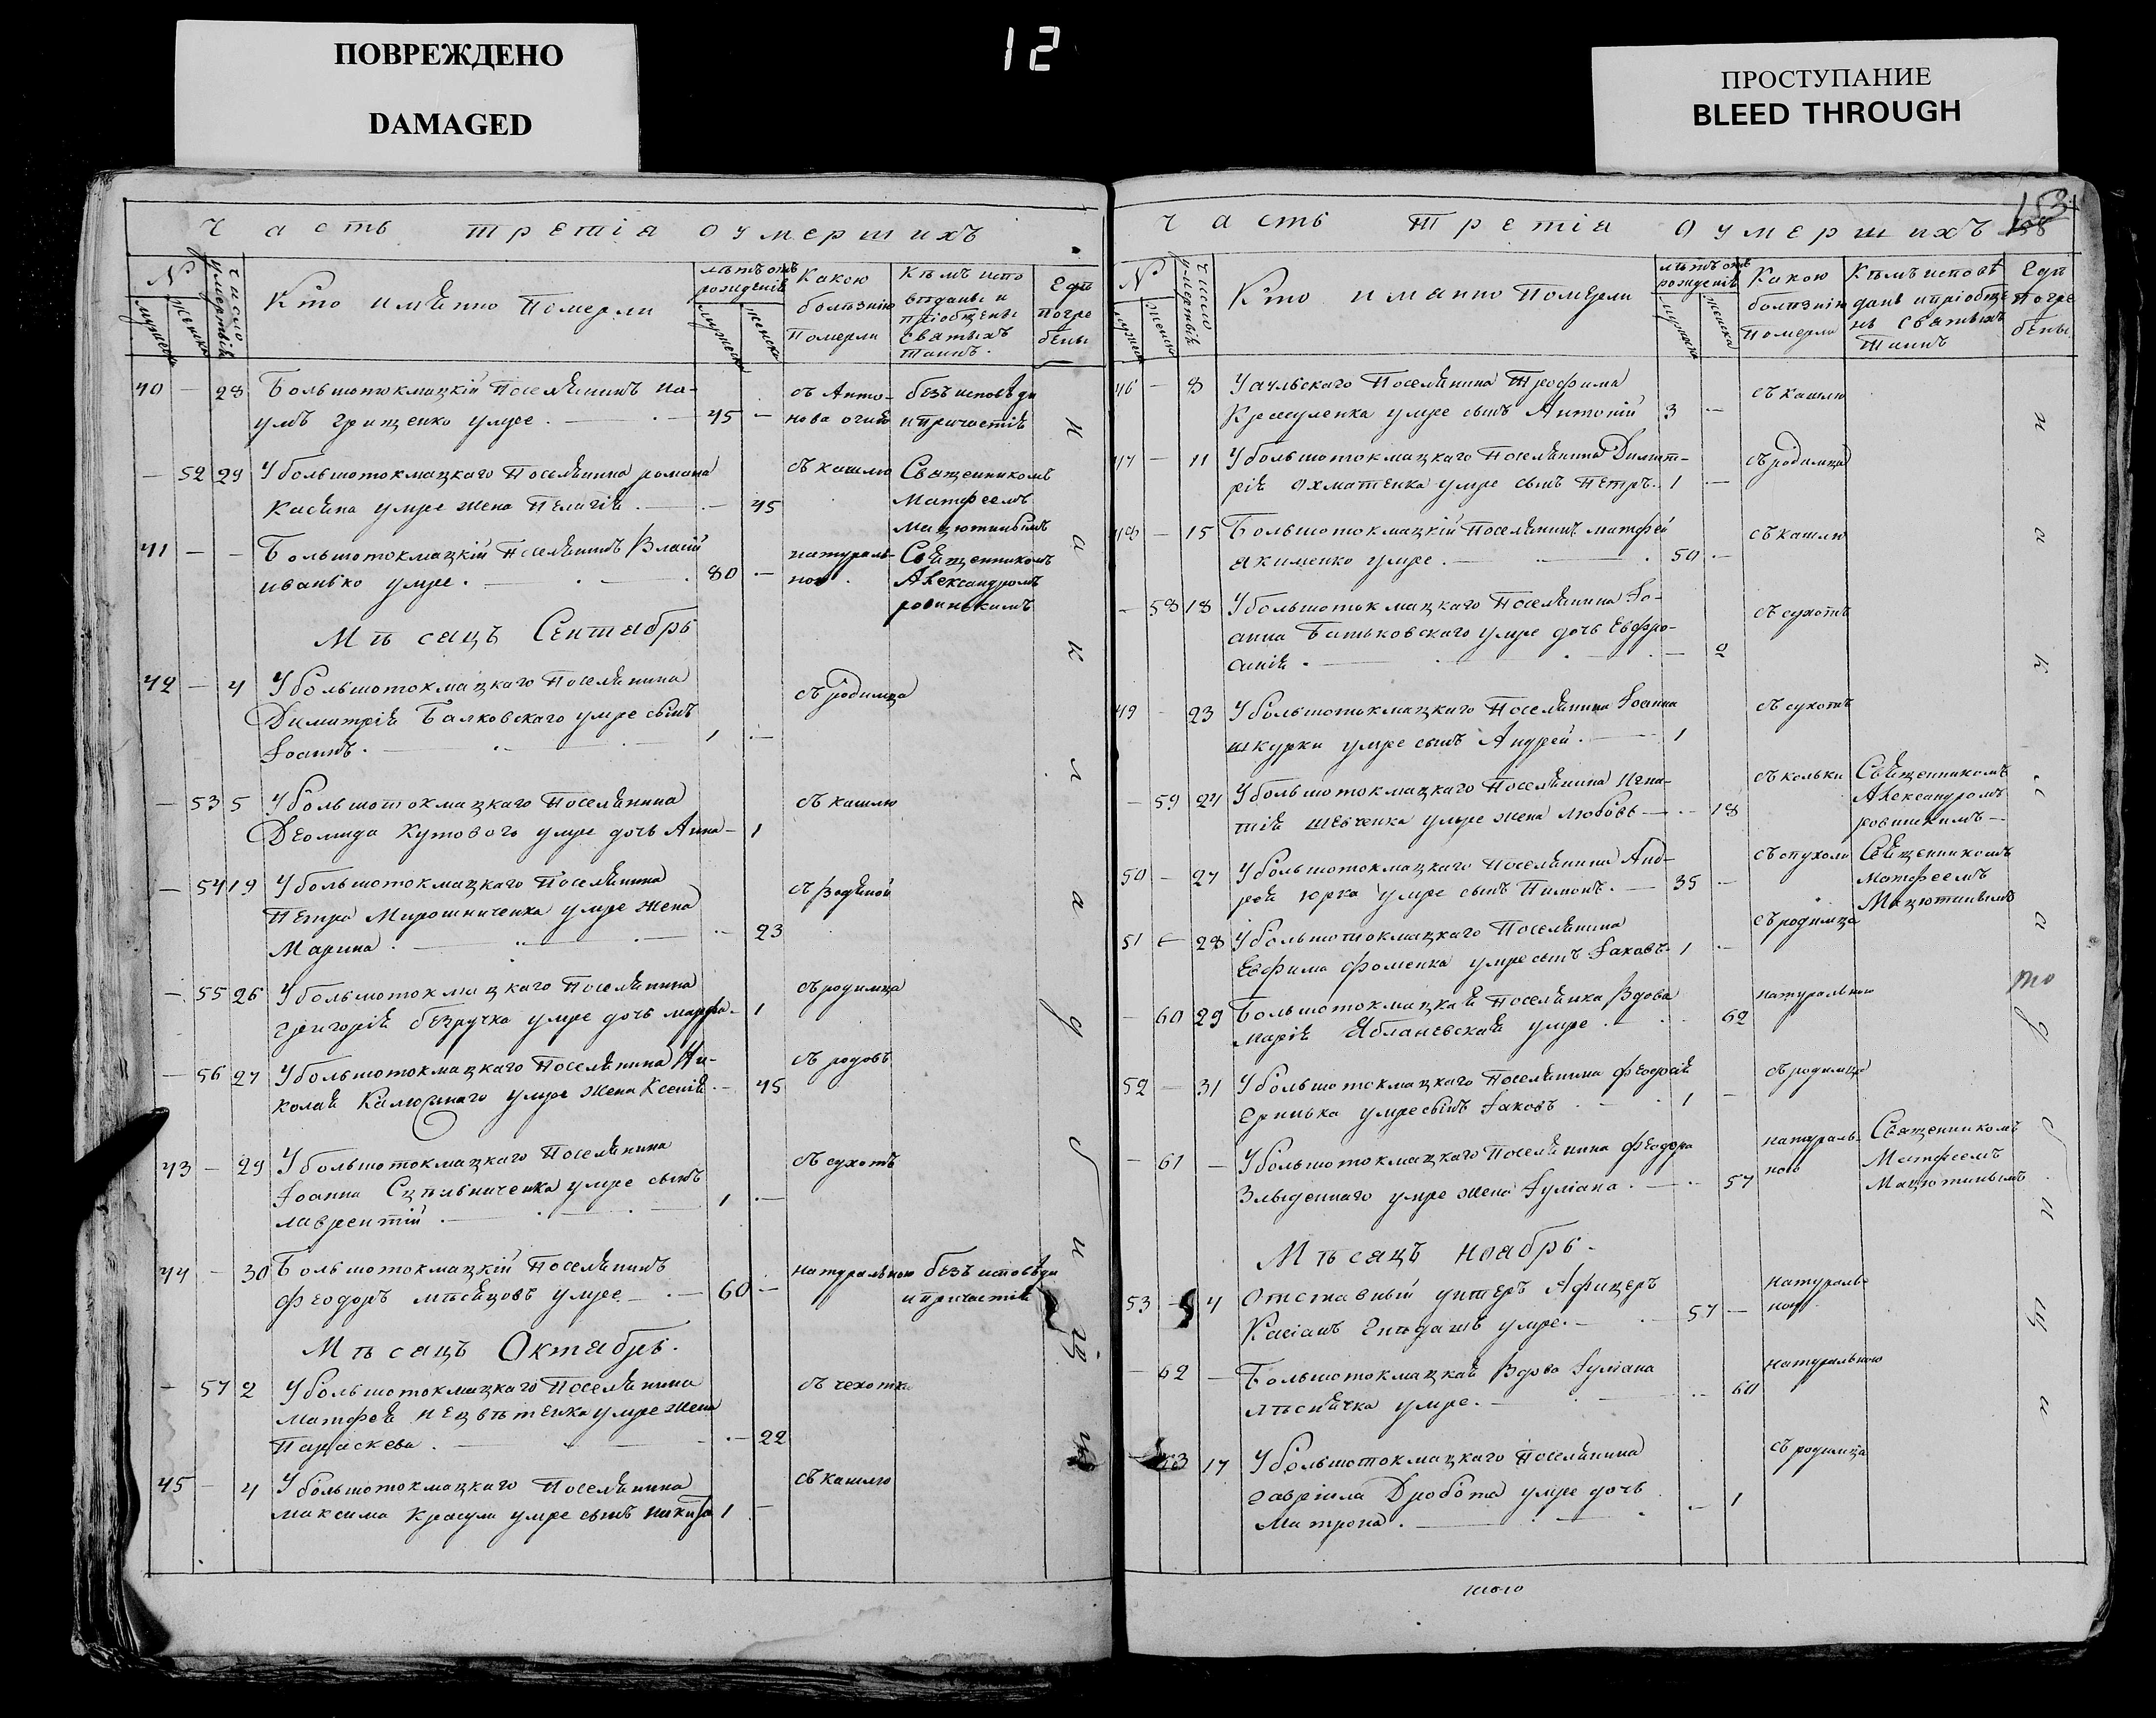 ПОВРЕЖДЕНО
DAMAGED
12
ПРОСТУПАНИЕ
BLEED THROUGH
Часть третіа оумершихъ
№
мужеска
женска
число умертвія
Кто имянно Померли
лѣтъ отъ рожденія
мужеска
женска
Какою болѣзнію Померли
Кѣмъ исповѣданы и пріобщены Святыхъ Таинъ.
Где погребены
40 — 28 Большотокмацкій Поселянинъ На- съ Анто- безъ исповѣди
умъ Грищенко умре. 45 — нова огня и причастія
— 52 29 У большотокмацкаго Поселянина романа съ кашлю Священникомъ
Касяна умре жена Пелагія. — 45 Матфеемъ
Мацютинымъ
41 — — Большотокмацкій Поселянинъ Власій натураль- Священникомъ
иванько умре. 80 — ною. Александромъ
ровинскимъ
Мѣсацъ Сентабрь
42 — 4 У большотокмацкаго Поселянина съ родимца
Димитрія Балковскаго умре сынъ
Іоаннъ. 1 —
— 53 5 У большотокмацкаго Поселянина съ кашлю
Деомида Кутового умре дочь Анна — 1
— 54 19 У большотокмацкаго Поселянина съ Водяной
Петра Мирошниченка умре жена
Марина. — 23
— 55 26 У большотокмацкаго Поселянина съ родимца
Григорія безручка умре дочь марфа. 1
— 56 27 У большотокмацкаго Поселянина Ни- съ родовъ
колая Калюжнаго умре жена Ксенія. — 45
43 — 29 У большотокмацкаго Поселянина съ сухотъ
Іоанна умре сынъ
лаврентій. 1 —
44 — 30 Большотокмацкій Поселянинъ натуральною безъ исповѣди
феодоръ мѣсяцовъ умре 60 — и причастія
Мѣсацъ Октабрь.
— 57 2 У большотокмацкаго Поселянина съ чехотки
Матфея нецвѣтенка умре жена
Параскева. — 22
45 — 4 У большотокмацкаго Поселянина съ кашлю
максима Красули умре сынъ никита 1 —
на кладбищѣ
Часть третіа Оумершихъ
153
№
мужеска
женска
число умертвія
Кто иманно Померли
лѣтъ отъ рожденія
мужеска
женска
Какою болѣзнію Померли
Кѣмъ исповѣданы и пріобщены Святыхъ Таинъ
Где погребены
46 — 8 У Поселянина Трофима съ кашлю
умре сынъ Антоній 3 —
47 — 11 У большотокмацкаго Поселянина Димит- съ родимца
рія Охматенка умре сынъ Петръ. 1 —
48 — 15 Большотокмацкій Поселянинъ матфей съ кашлю
акименко умре. 50 —
— 58 18 У большотокмацкаго Поселянина Іо- съ сухотъ
анна Батьковскаго умре дочь Евфро-
синія. — 2
49 — 23 У большотокмацкаго Поселянина Іоанна съ сухотъ
шкурки умре сынъ Андрей. 1
— 59 24 У большотокмацкаго Поселянина Игна- съ кольки Священникомъ
тія шевченка умре жена любовь — 18 Александромъ
ровинскимъ —
50 — 27 У большотокмацкаго Поселянина Анд- съ опухоли Священникомъ
рея юрка умре сынъ Пимонъ. 35 — Матфеемъ
Мацютинымъ
51 — 28 У большотокмацкаго Поселянина съ родимца
Евфима фоменка умре сынъ Іаковъ 1 —
— 60 29 Большотокмацкая Поселянка Вдова натуральною
марія Яблоневская умре. — 62
52 — 31 У большотокмацкаго Поселянина съ родимца
Гринька умре сынъ Іаковъ 1 —
— 61 — У большотокмацкаго Поселянина феодора натураль- Священникомъ
умре жена Іуліана. — 57 ною Матфеемъ
Мацютинымъ
Мѣсацъ ноабрь.
53 — 4 Отставный унтеръ Афицеръ натураль-
Касіанъ умре. 57 — ною
— 62 — Большотокмацкая Вдова Іуліана натуральною
лѣснячка умре. — 60
63 17 У большотокмацкаго Поселянина съ родимца
Гавріила Дробота умре дочь
Матрона. — 1
на кладбищѣ
то
итого